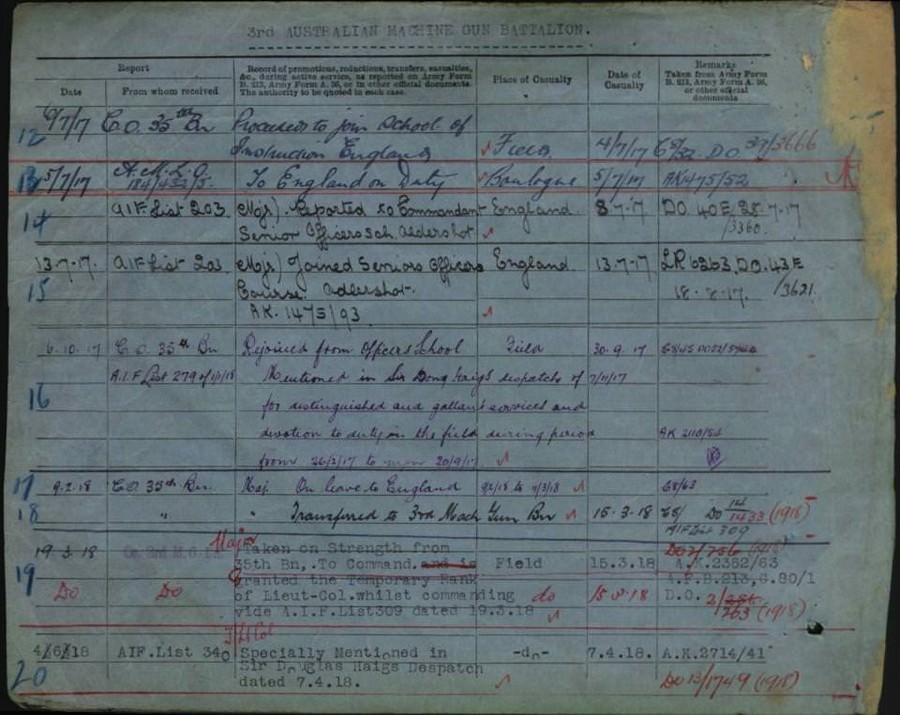 3rd AUSTRALIAN MACHINE GUN BATTALION.
Report
Date
From whom received
Record of promotions, reductions, transfers, casualties,
&c., during active service, as reported on Army Form
B. 213, Army Form A. 36, or in other official documents.
The authority to be quoted in each case.
Place of Casualty
Date of
Casualty
Remarks
Taken from Army Form
B. 213, Army Form A. 36,
or other official
documents
12
C.O. 35th Bn
Proceeds to join School of
Instruction England
Field
4/7/17
DO 37/3666
13
5/7/17
A.M.L.O.
To England on Duty
Boulogne
5/7/17
AK1475/52
14
AIF List 203
(Mjr). Reported to Commandant
Senior Officers Sch. Aldershot.
England.
8-7-17
DO. 40E. 25-7-17
/3360.
13-7-17.
15
AIF List 203
(Mjr) Joined Seniors Officers
Course. Aldershot.
AK. 1475/93
England.
13-7-17
LR 6263, DO. 43E
18-8-17. /3621.
6.10.17
C.O. 35th Bn
Rejoined from Officers School
Field
30.9.17
16
A.I.F. List 279 of 1/1/18
Mentioned in Sir Doug Haigs despatch of 7/11/17
for distinguished and gallant services and
devotion to duty in the field during period
from 26/2/17 to 20/9/17
AK 2110/54
17
9.2.18
C.O. 35th Bn.
Maj. On leave to England
9/2/18 to 4/3/18
68/63
18
"
" Transferred to 3rd Mach Gun Bn
15.3.18
DO 14/1433 (1918)
AIF List 309
19.3.18
Major
Taken on Strength from
35th Bn, .To Command. and is
granted the Temporary Rank
of Lieut-Col. whilst commanding
vide A.I.F.List309 dated 19.3.18
Field
15.3.18
DO2/256 (1918)
A.K.2362/63
A.F.B.213,G.80/1
19
Do
Do
do
D.O. 2/256
263 (1918)
T/Lt Col
4/6/18
AIF.List 340
Specially Mentioned in
Sir Douglas Haigs Despatch
dated 7.4.18.
-do-
7.4.18.
A.K.2714/41
20
DO 13/1749 (1918)